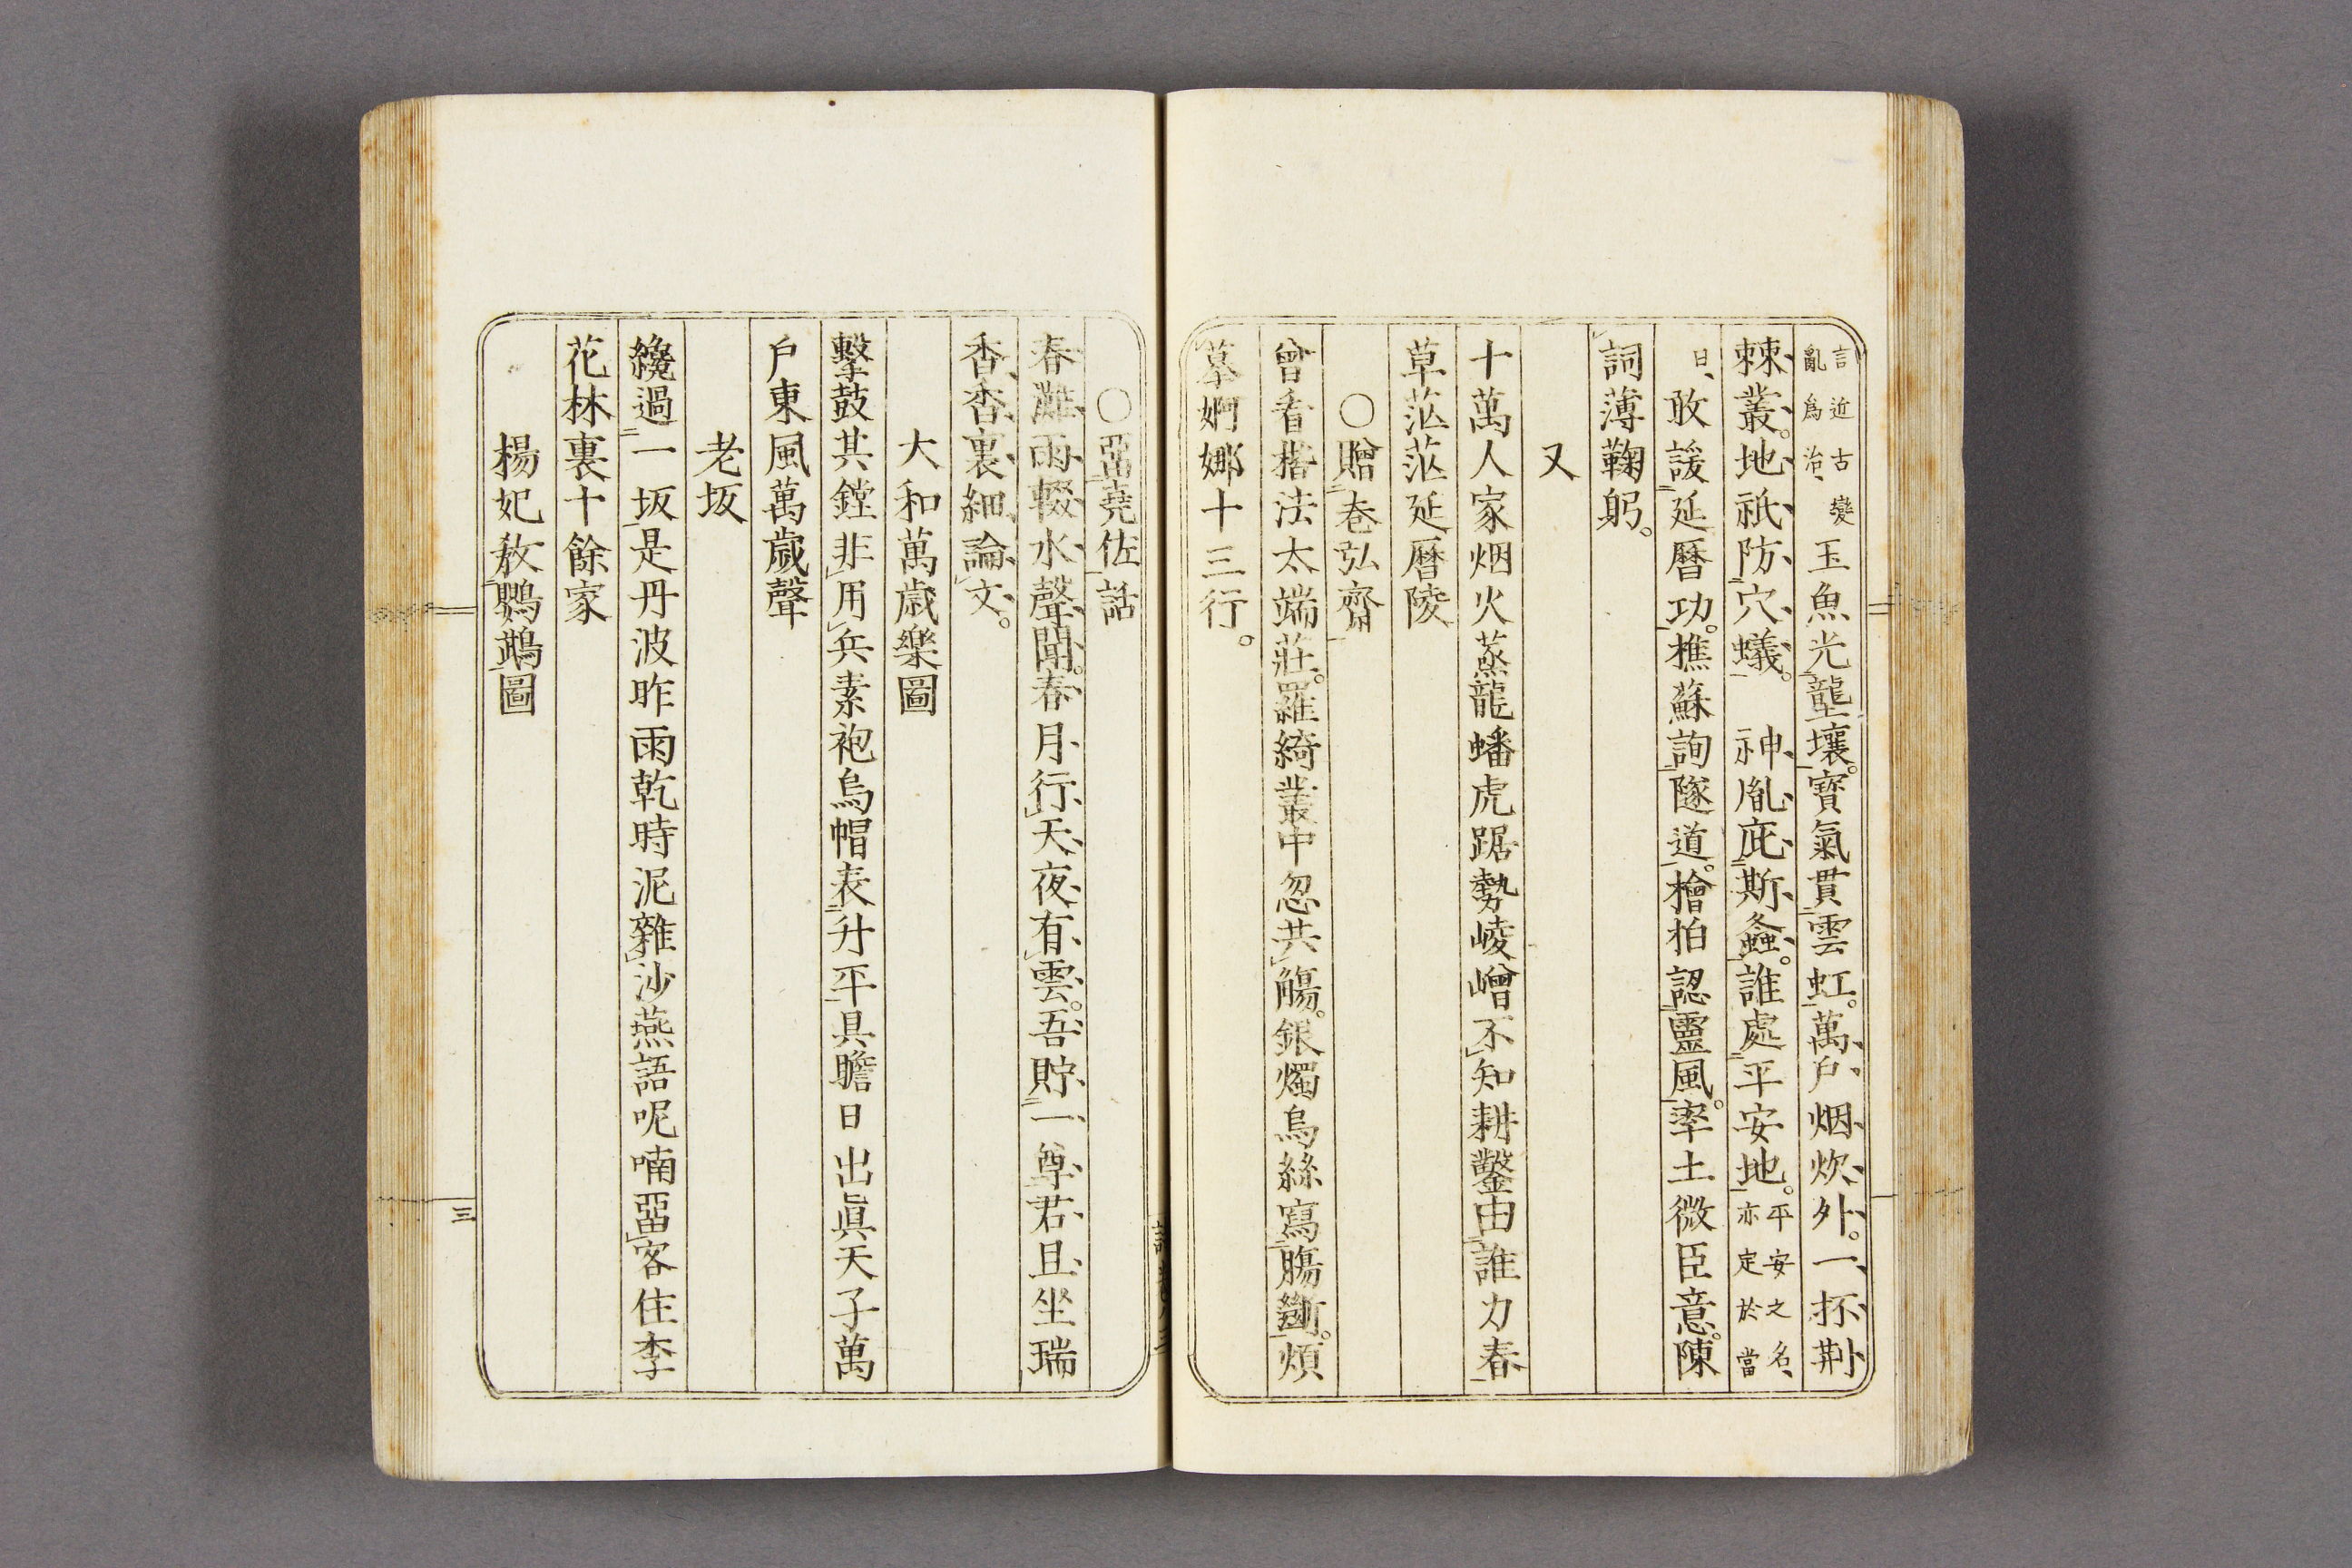 言近古變
亂爲治、
玉魚光壟壤。寶氣貫雲虹。萬戶烟炊外。一抔荆
棘叢。地祇防穴蟻。神胤庇斯螽。誰處平安地。
平安之名、
亦定於當
日、
敢諼延曆功。樵蘇詢隧道。檜柏認靈風。率土微臣意。陳
詞薄鞠躬。
又
十萬人家烟火蒸龍蟠虎踞勢崚嶒不知耕鑿由誰力春
草茫茫延曆陵
○贈卷弘齋
曾看楷法太端莊。羅綺叢中忽共觴。銀燭烏絲寫腸斷。煩
摹婀娜十三行。
○畱堯佐話
春灘雨輟水聲聞。春月行天夜有雲。吾貯一尊君且坐瑞
香香裏細論文。
大和萬歲樂圖
擊鼓其鏜非用兵素袍烏帽表升平具瞻日出眞天子萬
戶東風萬歲聲
老坂
纔過一坂是丹波昨雨乾時泥雜沙燕語呢喃畱客住李
花林裏十餘家
楊妃敎鸚鵡圖
三